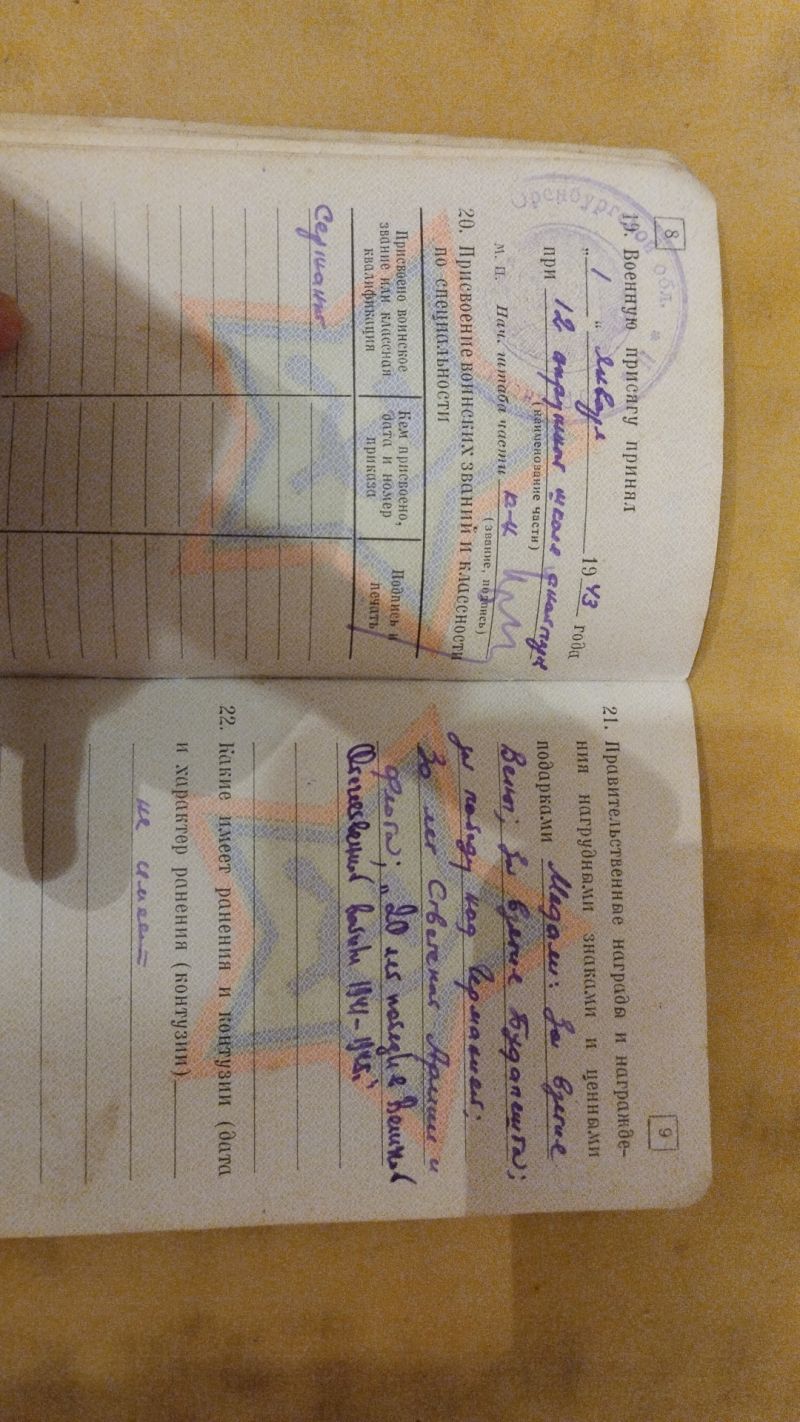 8
Оренбургской обл.
19. Военную присягу принял
„ 1 “ Января 1943 года
при 12 окружной школе снайпер
(наименование части)
М. П. Нач. штаба части к-н
(звание, подпись)
20. Присвоение воинских званий и классности
по специальности
Присвоено воинское
звание или классная
квалификация
Кем присвоено,
дата и номер
приказа
Подпись и
печать
Сержант
9
21. Правительственные награды и награжде-
ния нагрудными знаками и ценными
подарками Медали: За взятие
Вены; За взятие Будапешта;
За победу над Германией;
30 лет Советской Армии и
флота; „20 лет победы в Великой
Отечественной войне 1941-1945г“
22. Какие имеет ранения и контузии (дата
и характер ранения (контузии)
не имеет